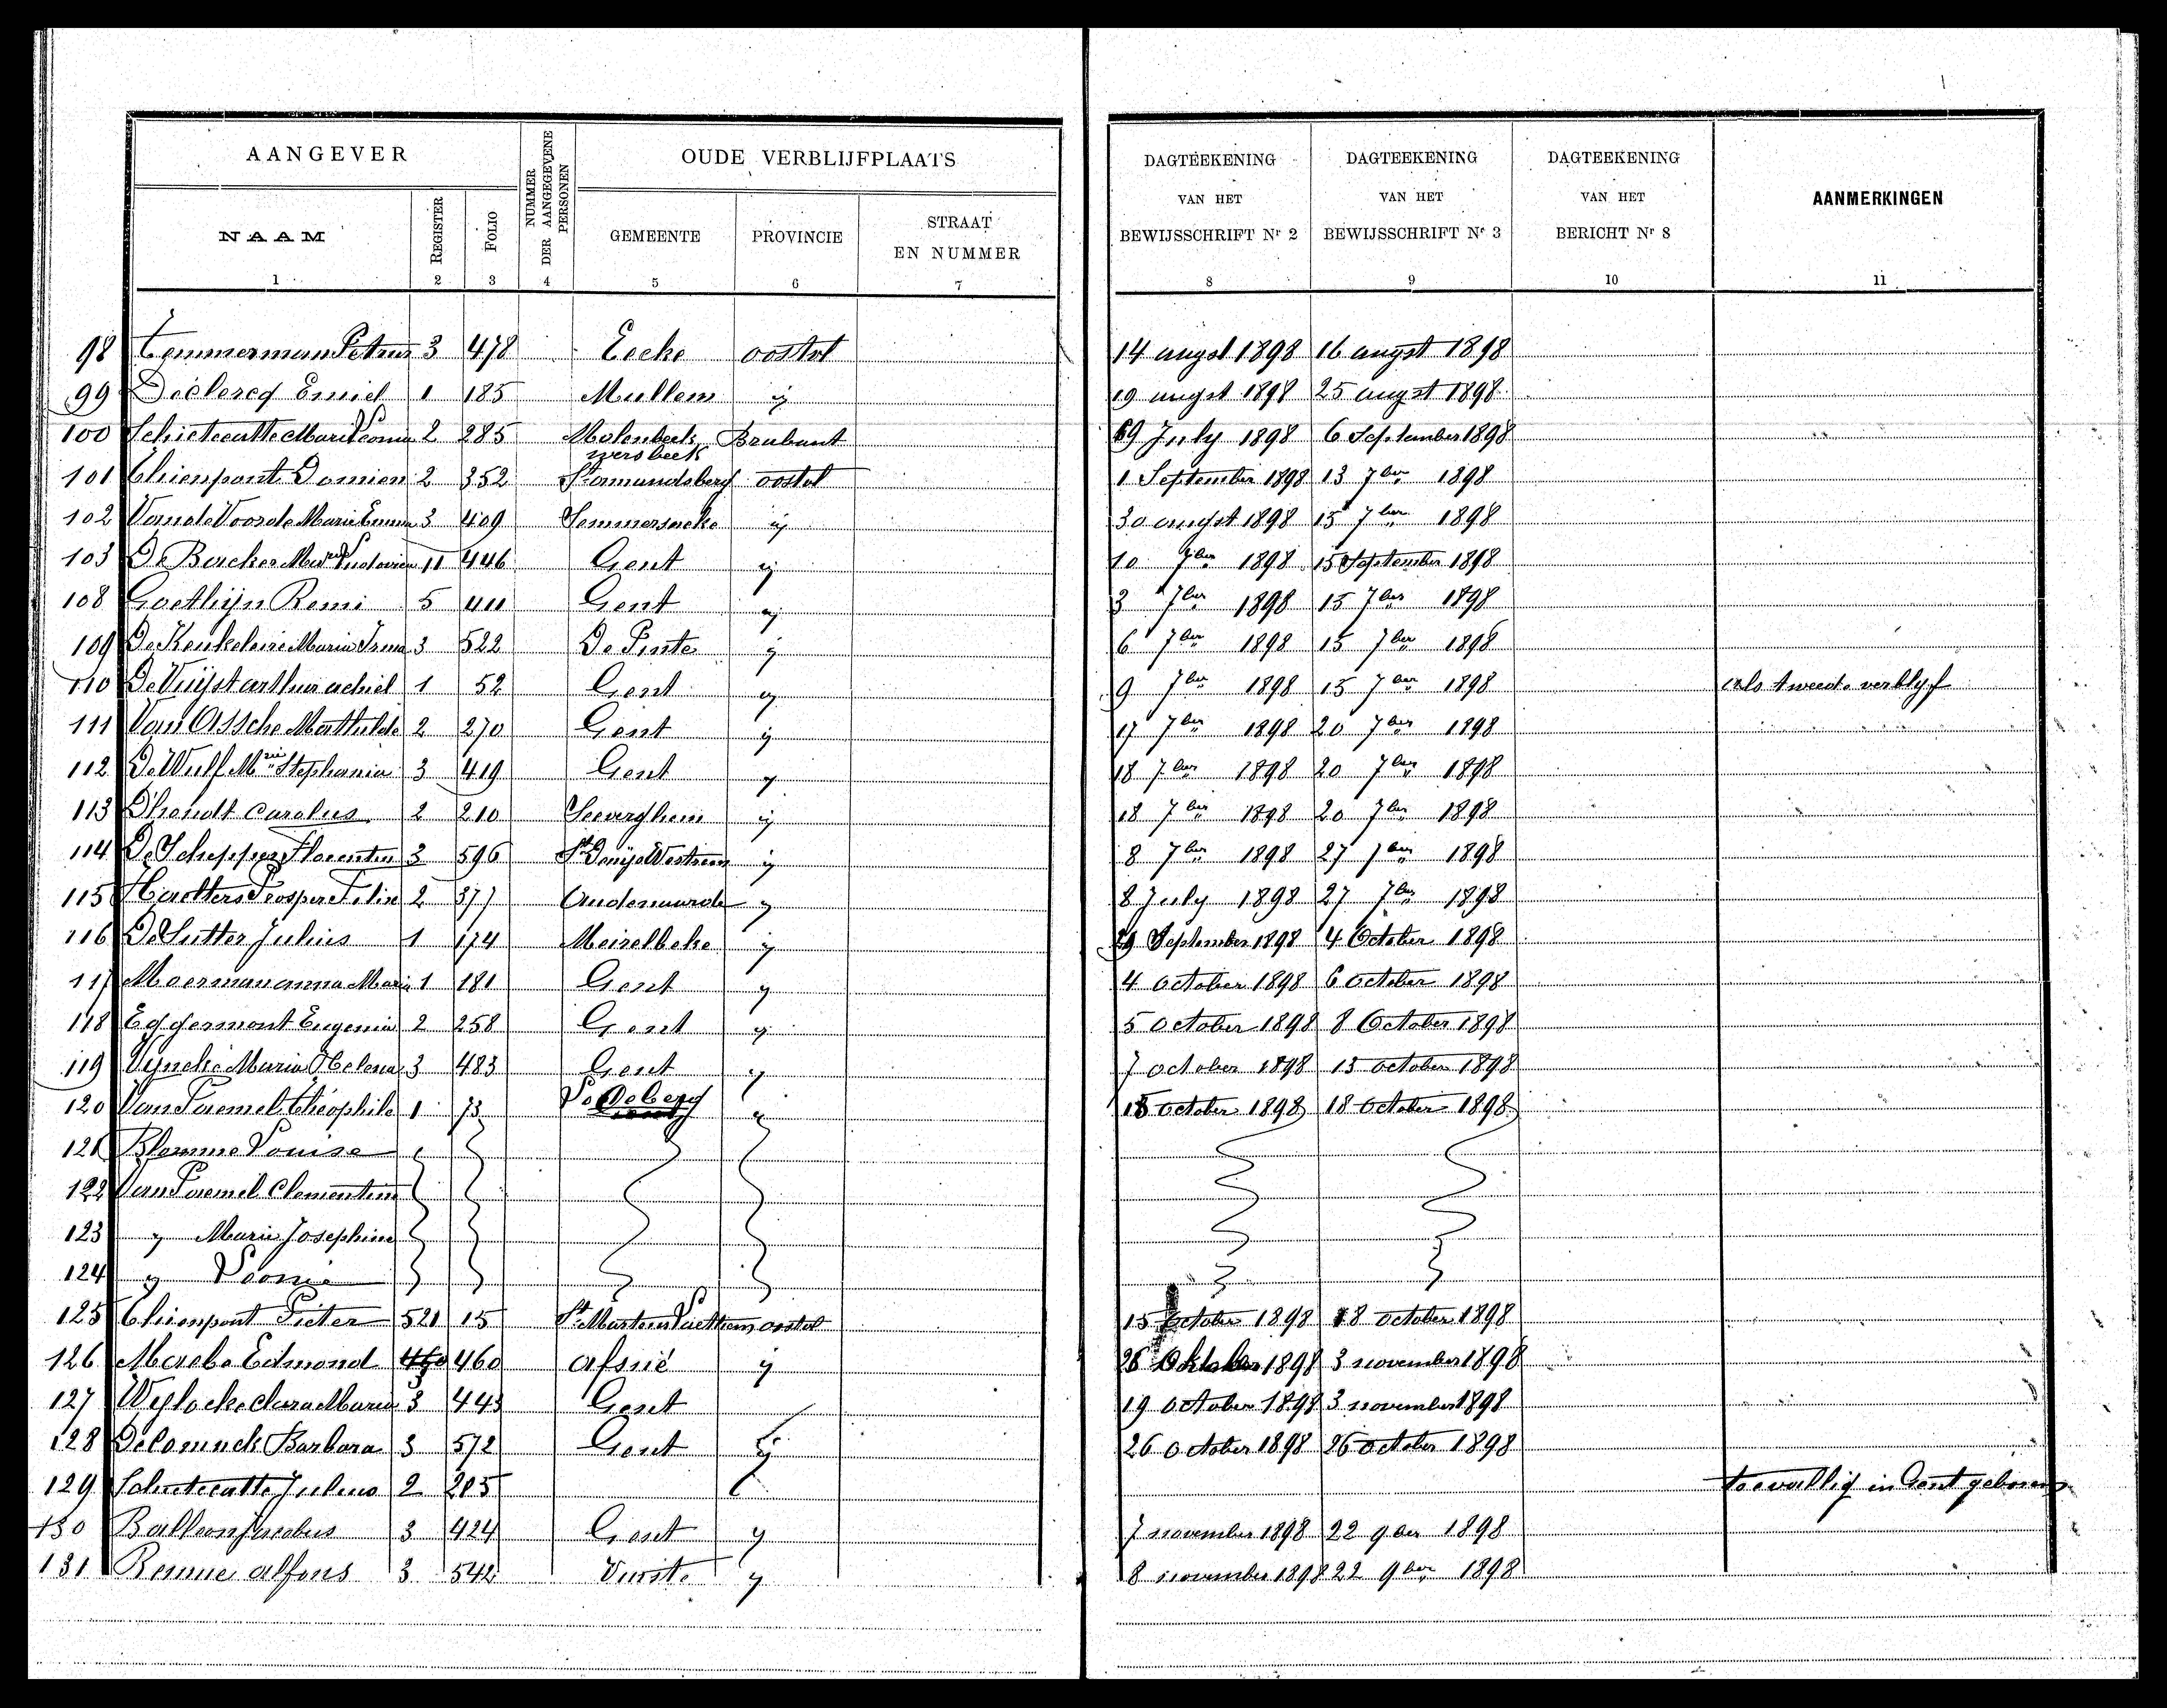 AANGEVER
NUMMER DER AANGEGEVENE PERSONEN
OUDE VERBLIJFPLAATS
DAGTEEKENING VAN HET BEWIJSSCHRIFT Nr 2
DAGTEEKENING VAN HET BEWIJSSCHRIFT Nr 3
DAGTEEKENING VAN HET BERICHT Nr 8
AANMERKINGEN
NAAM REGISTER FOLIO GEMEENTE PROVINCIE STRAAT EN NUMMER
1 2 3 4 5 6 7 8 9 10 11
98 Temmerman Petrus 3 478 Eecke oostvl 14 augst 1898 16 augst 1898
99 Declercq Emiel 1 185 Mullem ij 19 augst 1898 25 augst 1898
100 Schietecatte Marie Leonie 2 285 Molenbeek wersbeek Brabant 69 July 1898 6 September 1898
101 Thienpont Domien 2 352 St amandsberg oostvl 1 September 1898 13 7ber 1898
102 Van de Voorde Marie Emma 3 409 Semmersaeke ij 30 augst 1898 15 7ber 1898
103 De Backer Marie Ludovica 11 446 Gent ij 10 7ber 1898 15 September 1898
108 Goethijn Remi 5 411 Gent ij 3 7ber 1898 15 7ber 1898
109 De Keukeleire Maria Irma 3 522 De Pinte ij 6 7ber 1898 15 7ber 1898
110 De Vuijst arthur achiel 1 52 Gent ij 9 7ber 1898 15 7ber 1898 als tweede verblyf
111 Van Assche Mathilde 2 270 Gent ij 17 7ber 1898 20 7ber 1898
112 De Wulf Mrie Stephanie 3 419 Gent ij 18 7ber 1898 20 7ber 1898
113 Dhondt Carolus 2 210 Seeverghem ij 18 7ber 1898 20 7ber 1898
114 De Schepper Florentin 3 596 St Denijs Westrem ij 8 7ber 1898 27 7ber 1898
115 Haelters Prosper Felix 2 377 Audenaarde ij 8 July 1898 27 7ber 1898
116 De Sutter Julius 1 174 Meirelbeke ij 29 September 1898 4 October 1898
117 Moerman anna Maria 1 181 Gent ij 4 october 1898 6 october 1898
118 Eggermont Eugenia 2 258 Gent ij 5 october 1898 8 October 1898
119 Vyncke Maria Helena 3 483 Gent ij 7 october 1898 13 october 1898
120 Van Paemel theophile 1 73 Ledeberg ij 15 october 1898 18 october 1898
121 Blomme Louise
122 Van Paemel Clementine
123 ij Marie Josephine
124 ij Leonie
125 Thienpont Pieter 521 15 St Martens Laethem oostvl 15 october 1898 18 october 1898
126 Maebe Edmond 3 460 afsné ij 26 Oktober 1898 3 november 1898
127 Wylocke clara Maria 3 443 Gent 19 october 1898 3 november 1898
128 Delomuck Barbara 3 572 Gent ij 26 october 1898 26 october 1898
129 Schietecatte Julius 2 205 toevallig in Gent geboren
130 Balleon Jacobus 3 424 Gent ij 7 november 1898 22 9ber 1898
131 Benne alfons 3 542 Vurste ij 8 november 1898 22 9ber 1898